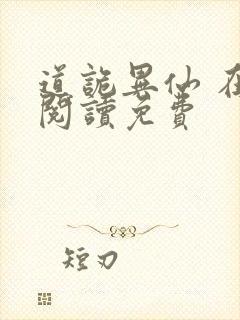 道詭異仙 在
閱讀免費
短刃